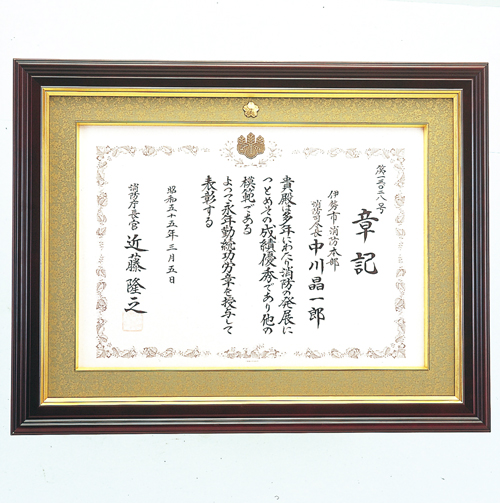 第一三〇二八号
章記
伊勢市消防本部
消防司令長 中川晶一郎
貴殿は多年にわたり消防の発展に
つとめその成績優秀であり他の
模範である
よつて永年勤続功労章を授与して
表彰する
昭和五十五年三月五日
消防庁長官 近藤隆之